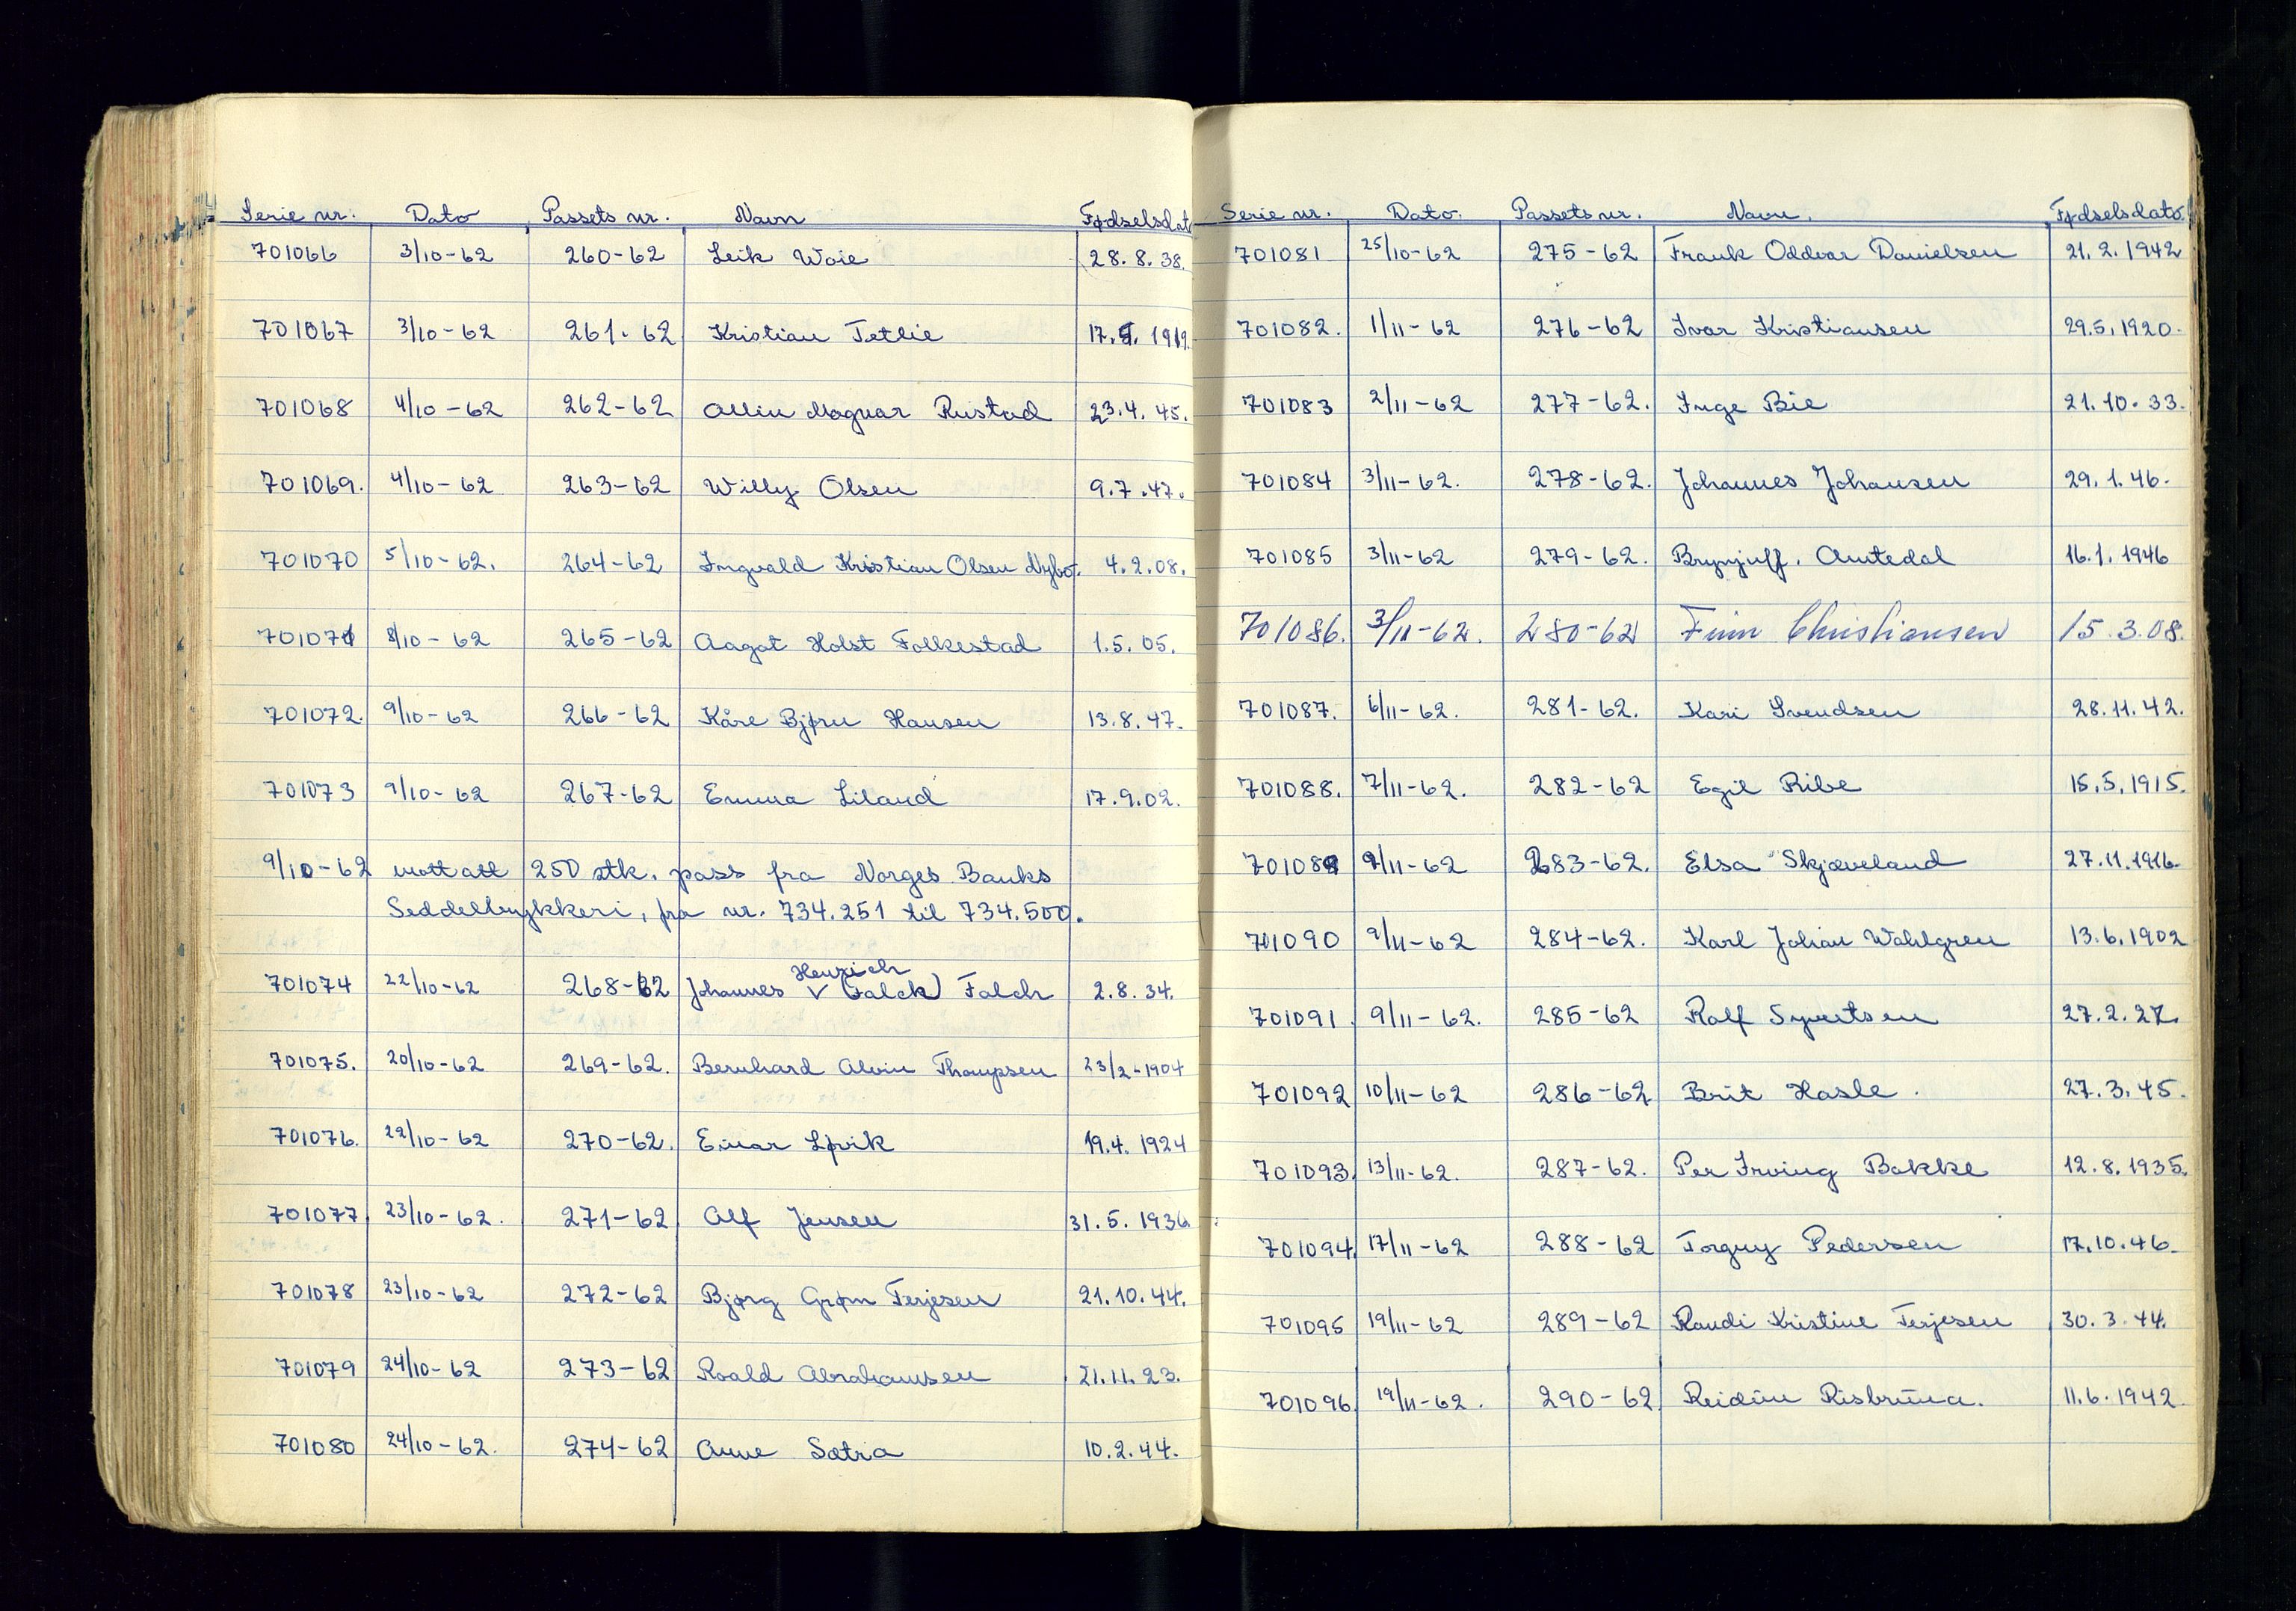 Serie nr. Dato Passets nr. Navn Fødselsdat
701066 3/10-62 260-62 Leik Woie 28.8.38.
701067 3/10-62 261-62 Kristian Tetlie 17.5.1919.
701068 4/10-62 262-62 Allin Magnar Rustad 23.4.45.
701069. 4/10-62 263-62 Willy Olsen 9.7.47.
701070 5/10-62. 264-62 Ingvald Kristian Olsen Nybø. 4.2.08.
701071 8/10-62 265-62 Aagot Holst Folkestad 1.5.05.
701072. 9/10-62 266-62 Kåre Bjørn Hansen 13.8.47.
701073 9/10-62 267-62 Emma Liland 17.9.02.
9/10-62 mottatt 250 stk. pass fra Norges Banks
Seddeltrykkeri, fra nr. 734.251 til 734.500.
Henrich
701074 22/10-62 268-62 Johannes V (Falck) Falch 2.8.34.
701075. 20/10-62 269-62. Bernhard Alvin Thompsen 23/2-1904
701076. 22/10-62 270-62. Einar Løvik 19.4.1924
701077. 23/10-62. 271-62 Alf Jensen 31.5.1936
701078 23/10-62 272-62 Bjørg Grøm Terjesen 21.10.44.
701079 24/10-62 273-62 Roald Abrahamsen 21.11.23.
701080 24/10-62. 274-62 Anne Sætra 10.2.44.
Serie nr. Dato. Passets nr. Navn. Fødselsdato.
701081 25/10-62 275-62 Frank Oddvar Danielsen 21.2.1942
701082. 1/11-62 276-62 Ivar Kristiansen 29.5.1920.
701083 2/11-62 277-62. Inge Bie 21.10.33.
701084 3/11-62. 278-62. Johannes Johansen 29.1.46.
701085 3/11-62 279-62. Brynjulf. Amtedal 16.1.1946
701086. 3/11-62. 280-62 Finn Christiansen 15.3.08.
701087. 6/11-62. 281-62. Kari Svendsen 28.11.42.
701088. 7/11-62. 282-62 Egil Ribe 15.5.1915.
701089 9/11-62 283-62. Elsa Skjæveland 27.11.1916.
701090 9/11-62 284-62. Karl Johan Wahlgren 13.6.1902
701091. 9/11-62. 285-62 Ralf Syvertsen 27.2.27.
701092 10/11-62 286-62 Brit Hasle. 27.3.45.
701093. 13/11-62. 287-62. Per Irving Bakke 12.8.1935.
701094. 17/11-62 288-62 Torguy Pedersen 17.10.46.
701095 19/11-62 289-62 Randi Kristine Terjesen 30.3.44.
701096. 19/11-62. 290-62 Reidun Risbruna. 11.6.1942.